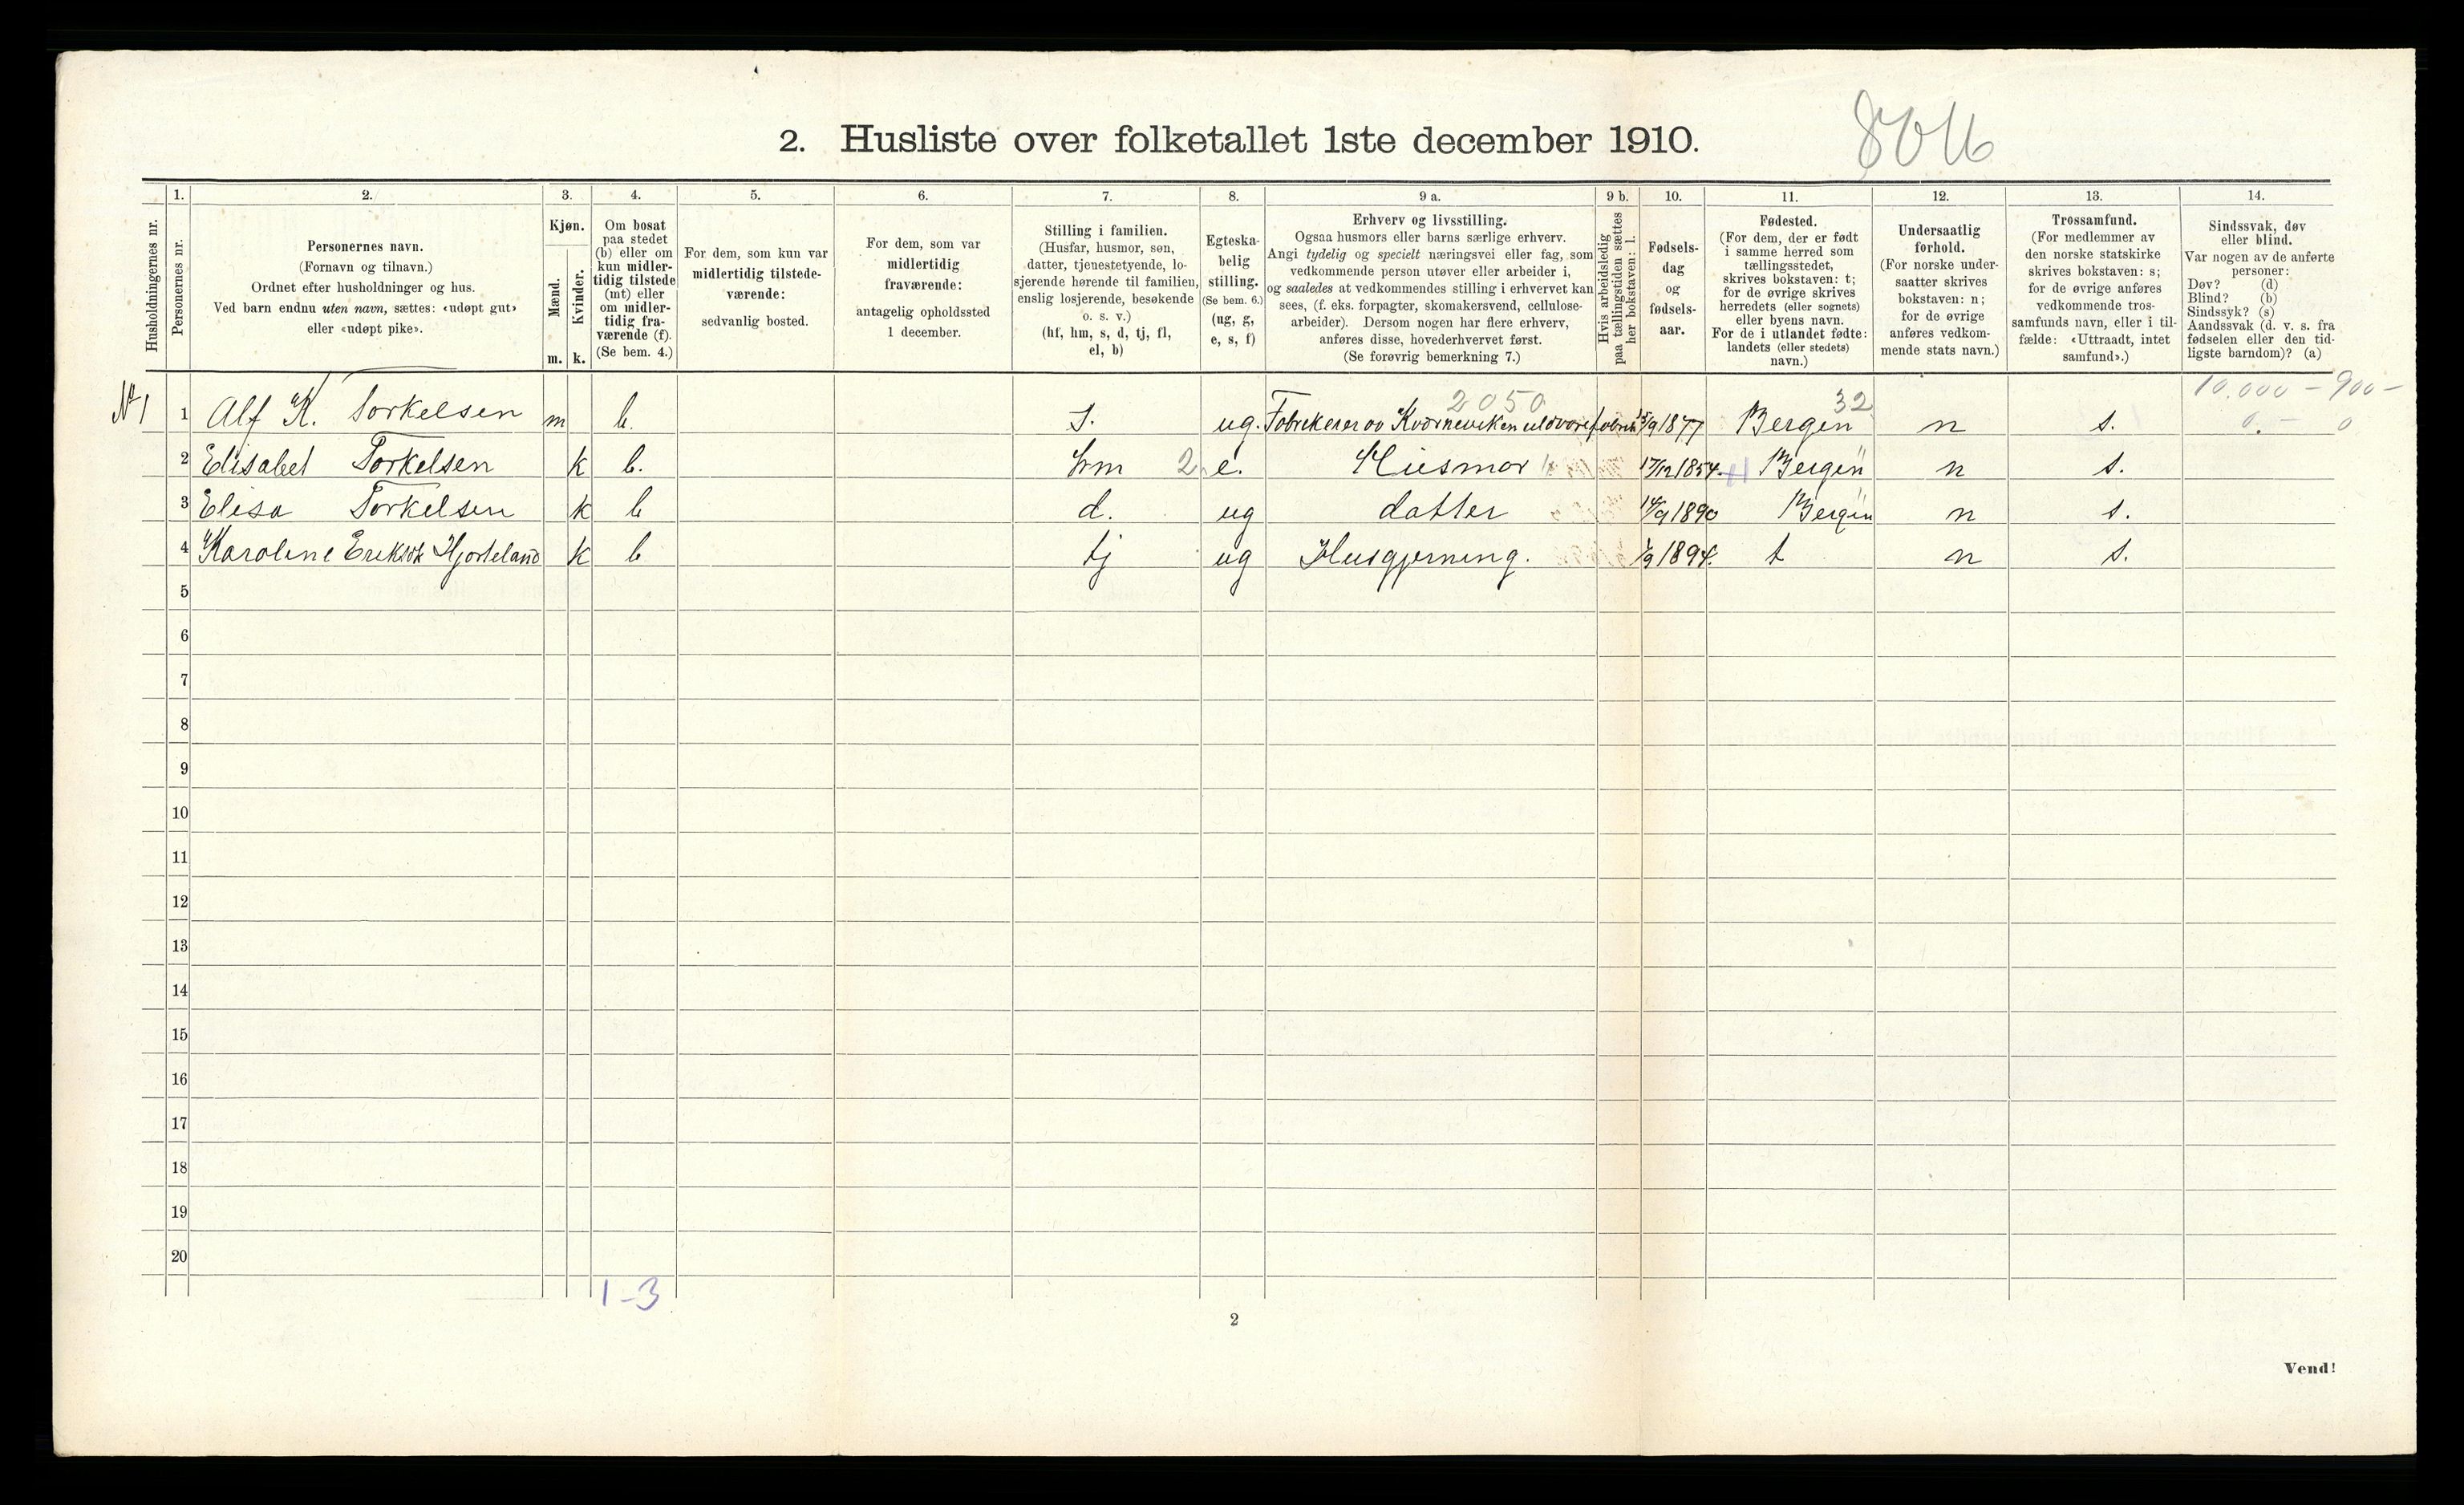 2. Husliste over folketallet 1ste december 1910.
Husholdningernes nr.
1.
Personernes nr.
2.
Personernes navn.
(Fornavn og tilnavn.)
Ordnet efter husholdninger og hus.
Ved barn endnu uten navn, sættes: «udøpt gut»
eller «udøpt pike».
3.
Kjøn.
Mænd.
m.
Kvinder.
k.
4.
Om bosat
paa stedet
(b) eller om
kun midler-
tidig tilstede
(mt) eller
om midler-
tidig fra-
værende (f).
(Se bem. 4.)
5.
For dem, som kun var
midlertidig tilstede-
værende:
sedvanlig bosted.
6.
For dem, som var
midlertidig
fraværende:
antagelig opholdssted
1 december.
7.
Stilling i familien.
(Husfar, husmor, søn,
datter, tjenestetyende, lo-
sjerende hørende til familien,
enslig losjerende, besøkende
o. s. v.)
(hf, hm, s, d, tj, fl,
el, b)
8.
Egteska-
belig
stilling.
(Se bem. 6.)
(ug, g,
e, s, f)
9 a.
Erhverv og livsstilling.
Ogsaa husmors eller barns særlige erhverv.
Angi tydelig og specielt næringsvei eller fag, som
vedkommende person utøver eller arbeider i,
og saaledes at vedkommendes stilling i erhvervet kan
sees, (f. eks. forpagter, skomakersvend, cellulose-
arbeider). Dersom nogen har flere erhverv,
anføres disse, hovederhvervet først.
(Se forøvrig bemerkning 7.)
9 b.
Hvis arbeidsledig
paa tællingstiden sættes
her bokstaven: l.
10.
Fødsels-
dag
og
fødsels-
aar.
11.
Fødested.
(For dem, der er født
i samme herred som
tællingsstedet,
skrives bokstaven: t;
for de øvrige skrives
herredets (eller sognets)
eller byens navn.
For de i utlandet fødte:
landets (eller stedets)
navn.)
12.
Undersaatlig
forhold.
(For norske under-
saatter skrives
bokstaven: n;
for de øvrige
anføres vedkom-
mende stats navn.)
13.
Trossamfund.
(For medlemmer av
den norske statskirke
skrives bokstaven: s;
for de øvrige anføres
vedkommende tros-
samfunds navn, eller i til-
fælde: «Uttraadt, intet
samfund».)
14.
Sindssvak, døv
eller blind.
Var nogen av de anførte
personer:
Døv? (d)
Blind? (b)
Sindssyk? (s)
Aandssvak (d. v. s. fra
fødselen eller den tid-
ligste barndom)? (a)
2050 32 10.000 – 900 –
№1 1 Alf K. Torkelsen m b. s. ug. Kvernevikens uldvarefabrik 1877 Bergen n s. 0. – 0
2 Elisabet Torkelsen k b. hm 2 e. Husmor 17/12 1854 Bergen n s.
3 Elisa Torkelsen k b d. ug datter 14/9 1890 Bergen n s.
4 Karoline Hjorteland k b tj ug Husgjerning. 1/9 1894. t n s.
5
6
7
8
9
10
11
12
13
14
15
16
17
18
19
20
1-3
2
Vend!